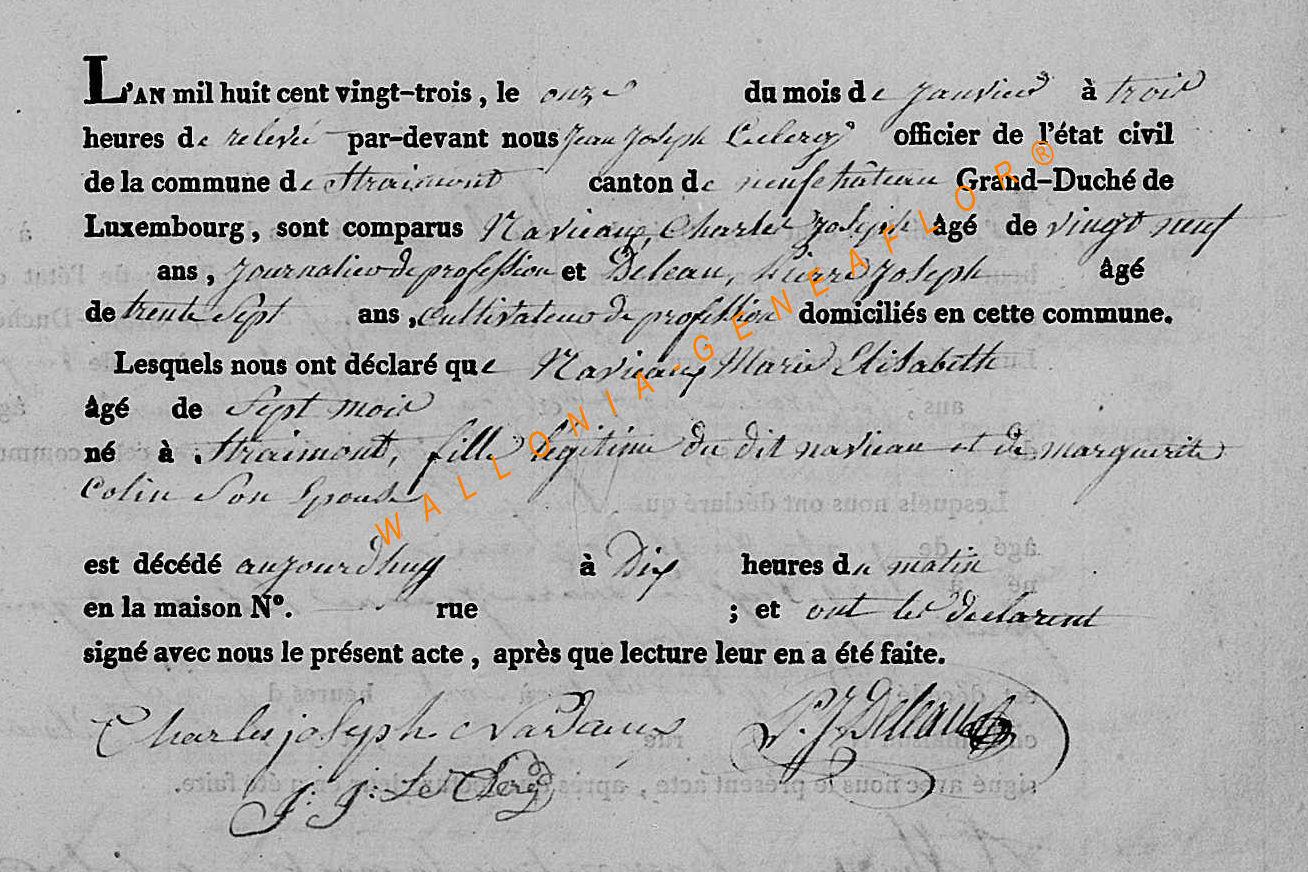 L'AN mil huit cent vingt-trois, le onze du mois de janvier à trois
heures de relevé par-devant nous Jean Joseph Leclercq officier de l'état civil
de la commune de Straimont canton de neufchâteau Grand-Duché de
Luxembourg, sont comparus Navieaux, Charles Joseph âgé de vingt neuf
ans, journalier de profession et Deleau, Pierre Joseph âgé
de trente Sept ans, cultivateur de profession domiciliés en cette commune.
Lesquels nous ont déclaré que Navieaux Marie Elisabeth
âgé de Sept mois
né à Straimont, fille légitime du dit navieau et de marguerite
Colin Son Epouse
est décédé aujourdhuy à Dix heures du matin
en la maison N°. rue ; et ont les declarent
signé avec nous le présent acte, après que lecture leur en a été faite.
Charles joseph Naviaux P. J. Deleau
J: J: Le Clercq
WALLONIA-GENEAFLOR®